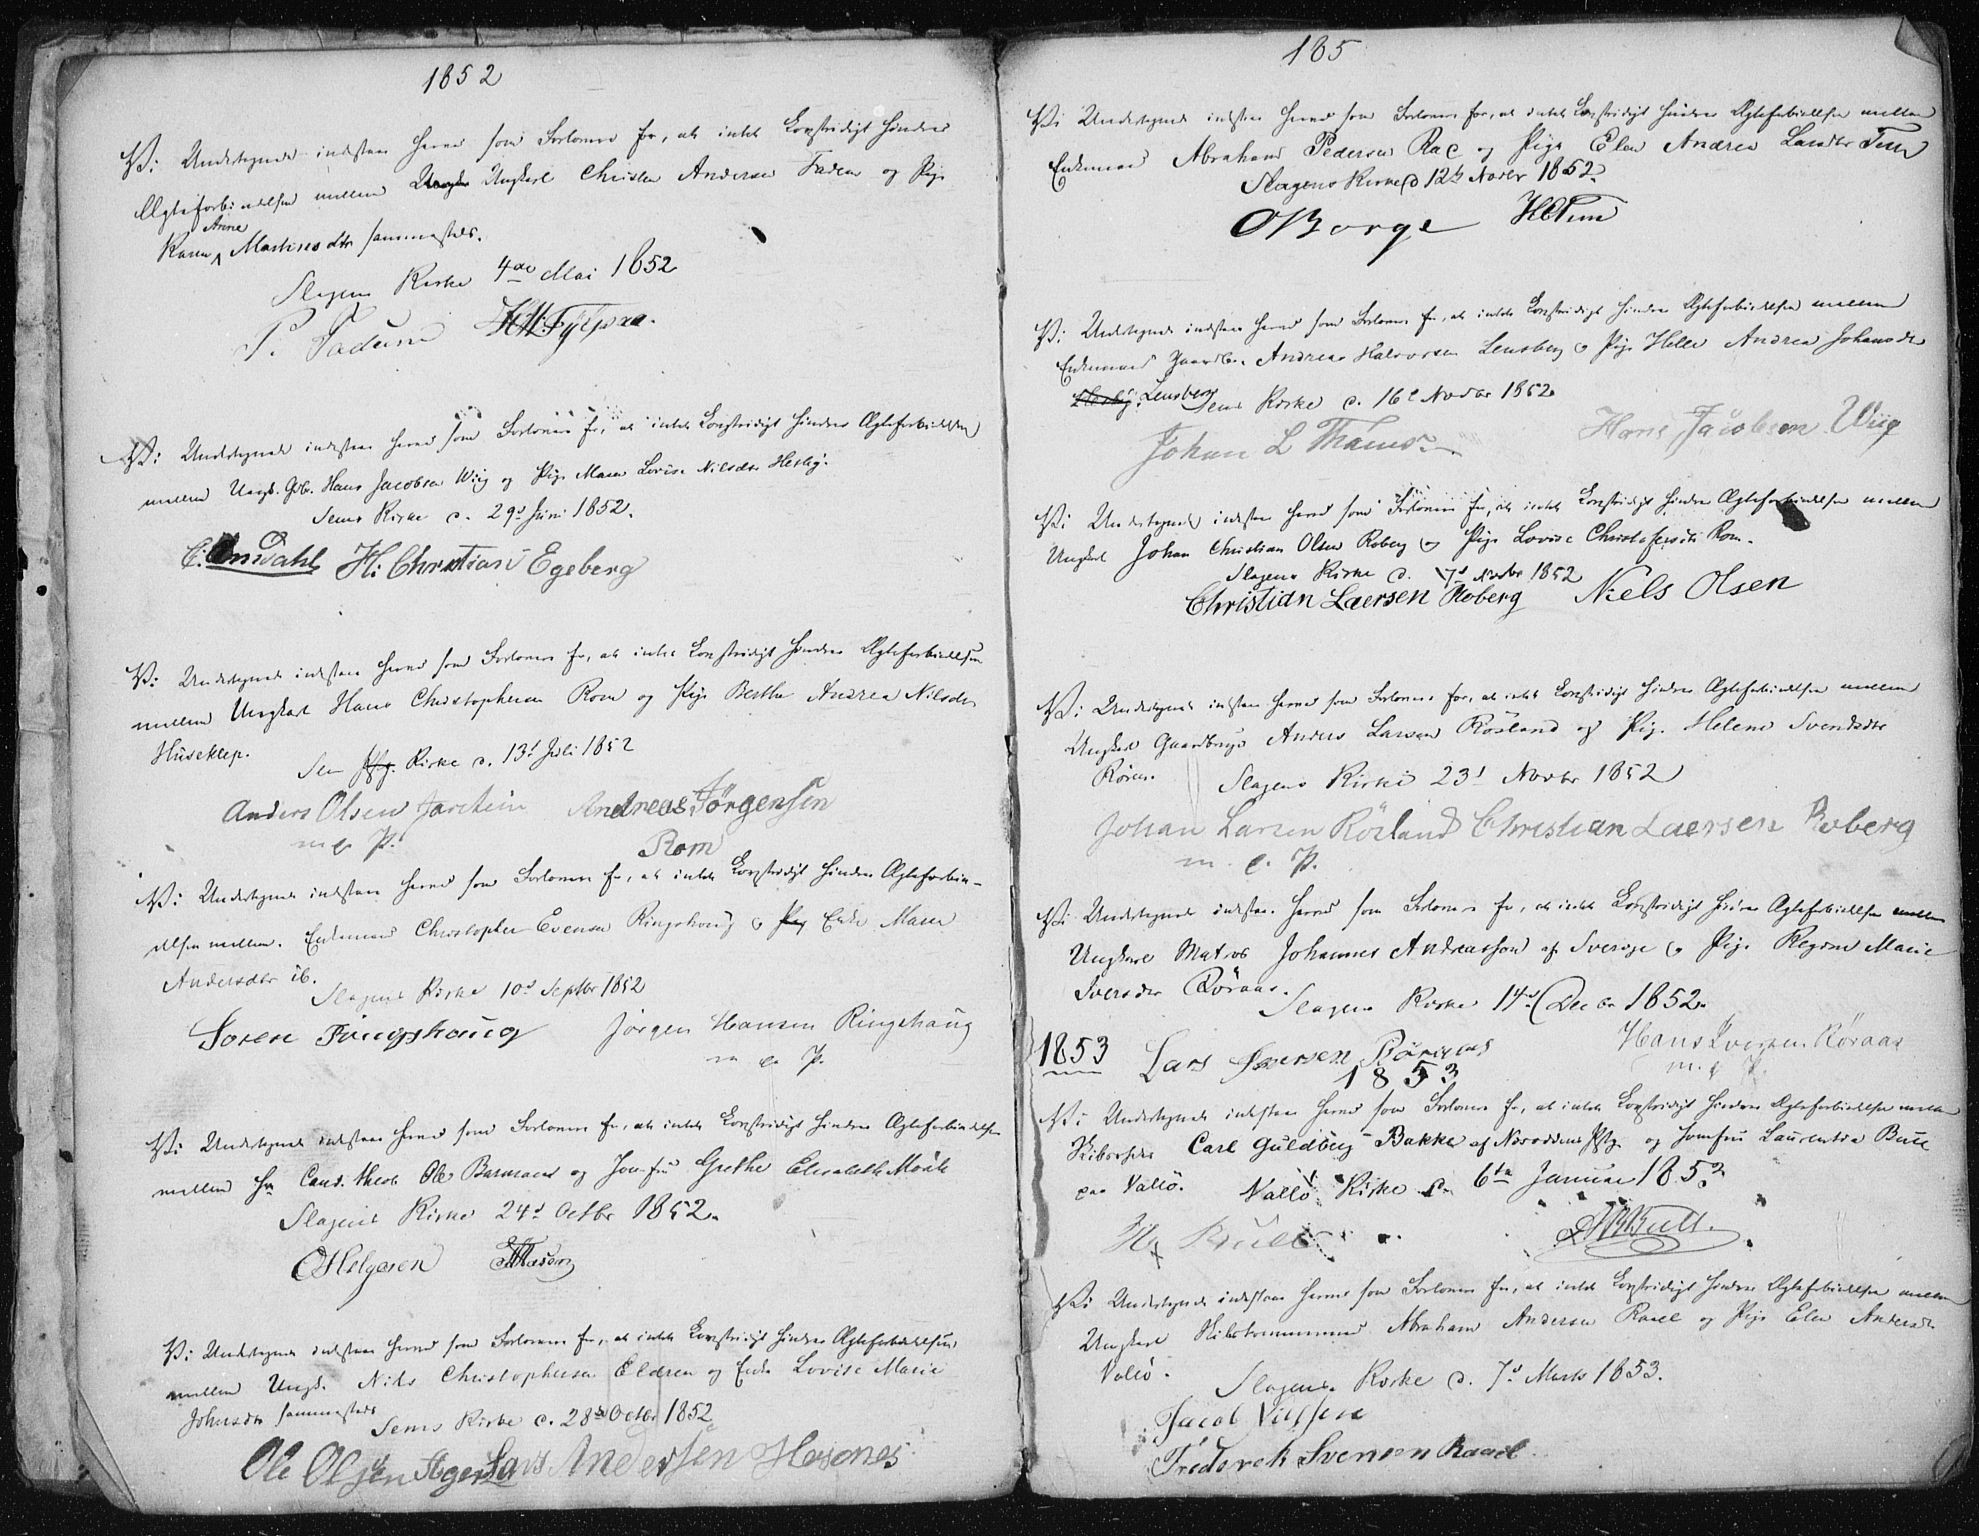 1852
Vi Undertegnede indestaae herved som Forlovere for, at intet Lovstridigt hindrer
Ægteforbindelsen mellem Ungkarl Christen Andersen Fadum og Pige
Anne
Karen Martinesdtr sammesteds.
Slagens Kirke 4de Mai 1852
P. Fadum
Vi Undertegnede indestaae herved som Forlovere for, at intet Lovstridigt hindrer Ægteforbindelsen
mellem Ungk. Gdb. Hans Jacobsen Wiig og Pige Maren Lovise Nilsdtr Hesby.
Sems Kirke d. 29d Juni 1852.
H: Christian Egeberg
Vi Undertegnede indestaae herved som Forlovere for, at intet Lovstridigt hindrer Ægteforbindelsen
mellem Ungkarl Hans Christophersen Rom og Pige Berthe Andrea Nilsdtr
Huseklep.
Sem Kirke d. 13d Juli 1852
Anders Olsen Jarstein Andreas Jörgensen
m. p. P. Rom
Vi Undertegnede indestaae herved som Forlovere for, at intet Lovstridigt hindrer Ægteforbin-
delsen mellem Enkemand Christopher Evensen Ringshoug og Enke Maren
Andersdtr ib.
Slagens Kirke 10d Septbr 1852
Soren Ringshaug Jörgen Hansen Ringshaug
m p. P.
Vi Undertegnede indestaae herved som Forlovere for, at intet Lovstridigt hindrer Ægteforbindelsen
mellem Hr Cand. theol. Ole Barmann og Jomfru Grethe Elisabeth
Slagens Kirke 24d Octbr 1852.
OHelgesen
Vi Undertegnede indestaae herved som Forlovere for, at intet Lovstridigt hindrer Ægteforbindelsen
mellem Ungk. Nils Christophersen Eldren og Enke Lovise Marie
Johnsdtr sammesteds
Sems Kirke d. 28d Octbr 1852
Ole Olsen Lars Andersen Hesones
185
Vi Undertegnede indestaae herved som Forlovere for, at intet Lovstridigt hindrer Ægteforbindelsen mellem
Enkemand Abraham Pedersen Rae og Pige Elen Andrea
Slagens Kirke d 12te Novbr 1852.
OBorge
Vi Undertegnede indestaae herved som Forlovere for, at intet Lovstridigt hindrer Ægteforbindelsen mellem
Enkemand Gaardbr. Andreas Halvorsen Lensberg og Pige Helle Andrea Johansdtr
Hesby. Lensberg
Sems Kirke d. 16d Novbr 1852
Johan L Hans Jacobsen Wiig
Vi Undertegnede indestaae herved som Forlovere for, at intet Lovstridigt hindrer Ægteforbindelsen mellem
Ungkarl Johan Christian Olsen Roberg og Pige Lovise Christofersdtr Rom.
Slagens Kirke d. 7d Novbr 1852
Christian Laersen Roberg Niels Olsen
Vi Undertegnede indestaae herved som Forlovere for, at intet Lovstridigt hindrer Ægteforbindelsen mellem
Ungkarl Gaardbruger Anders Larsen Rösland og Pige Helene Svendsdtr
Slagens Kirke 23d Novbr 1852
Johan Larsen Rösland Christian Laersen Roberg
m. p. P.
Vi Undertegnede indestaae herved som Forlovere for, at intet Lovstridigt hindrer Ægteforbindelsen mellem
Ungkarl Matros Johannes Andreasson af Sverige og Pige Regine Marie
Iversdtr Röraas.
Slagens Kirke 14d Decbr 1852.
1853 Lars Iversen Röraas Hans Iversen Röraas
1853 m. p. P.
Vi Undertegnede indestaae herved som Forlovere for, at intet Lovstridigt hindrer Ægteforbindelsen mellem
Skibsrheder Carl Guldberg Bakke af Pstg. og Jomfru Laurentia Bull
paa Vallö. Vallö Kirke d. 6te Januar 1853
Bull
Vi Undertegnede indestaae herved som Forlovere for, at intet Lovstridigt hindrer Ægteforbindelsen mellem
Ungkarl Skibstømmermand Abraham Andersen Rael og Pige Elen Andersdtr
Vallö.
Slagens Kirke d. 7d Marts 1853.
Jacob
Frederek Svensen Raael